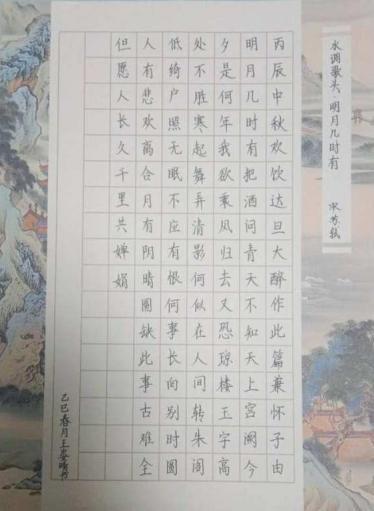 水调歌头 明月几时有 宋 苏轼
丙辰中秋欢饮达旦大醉作此篇兼怀子由
明月几时有把酒问青天不知天上宫阙今
夕是何年我欲乘风归去又恐琼楼玉宇高
处不胜寒起舞弄清影何似在人间转朱阁
低绮户照无眠不应有恨何事长向别时圆
人有悲欢离合月有阴晴圆缺此事古难全
但愿人长久千里共婵娟
乙巳春月王